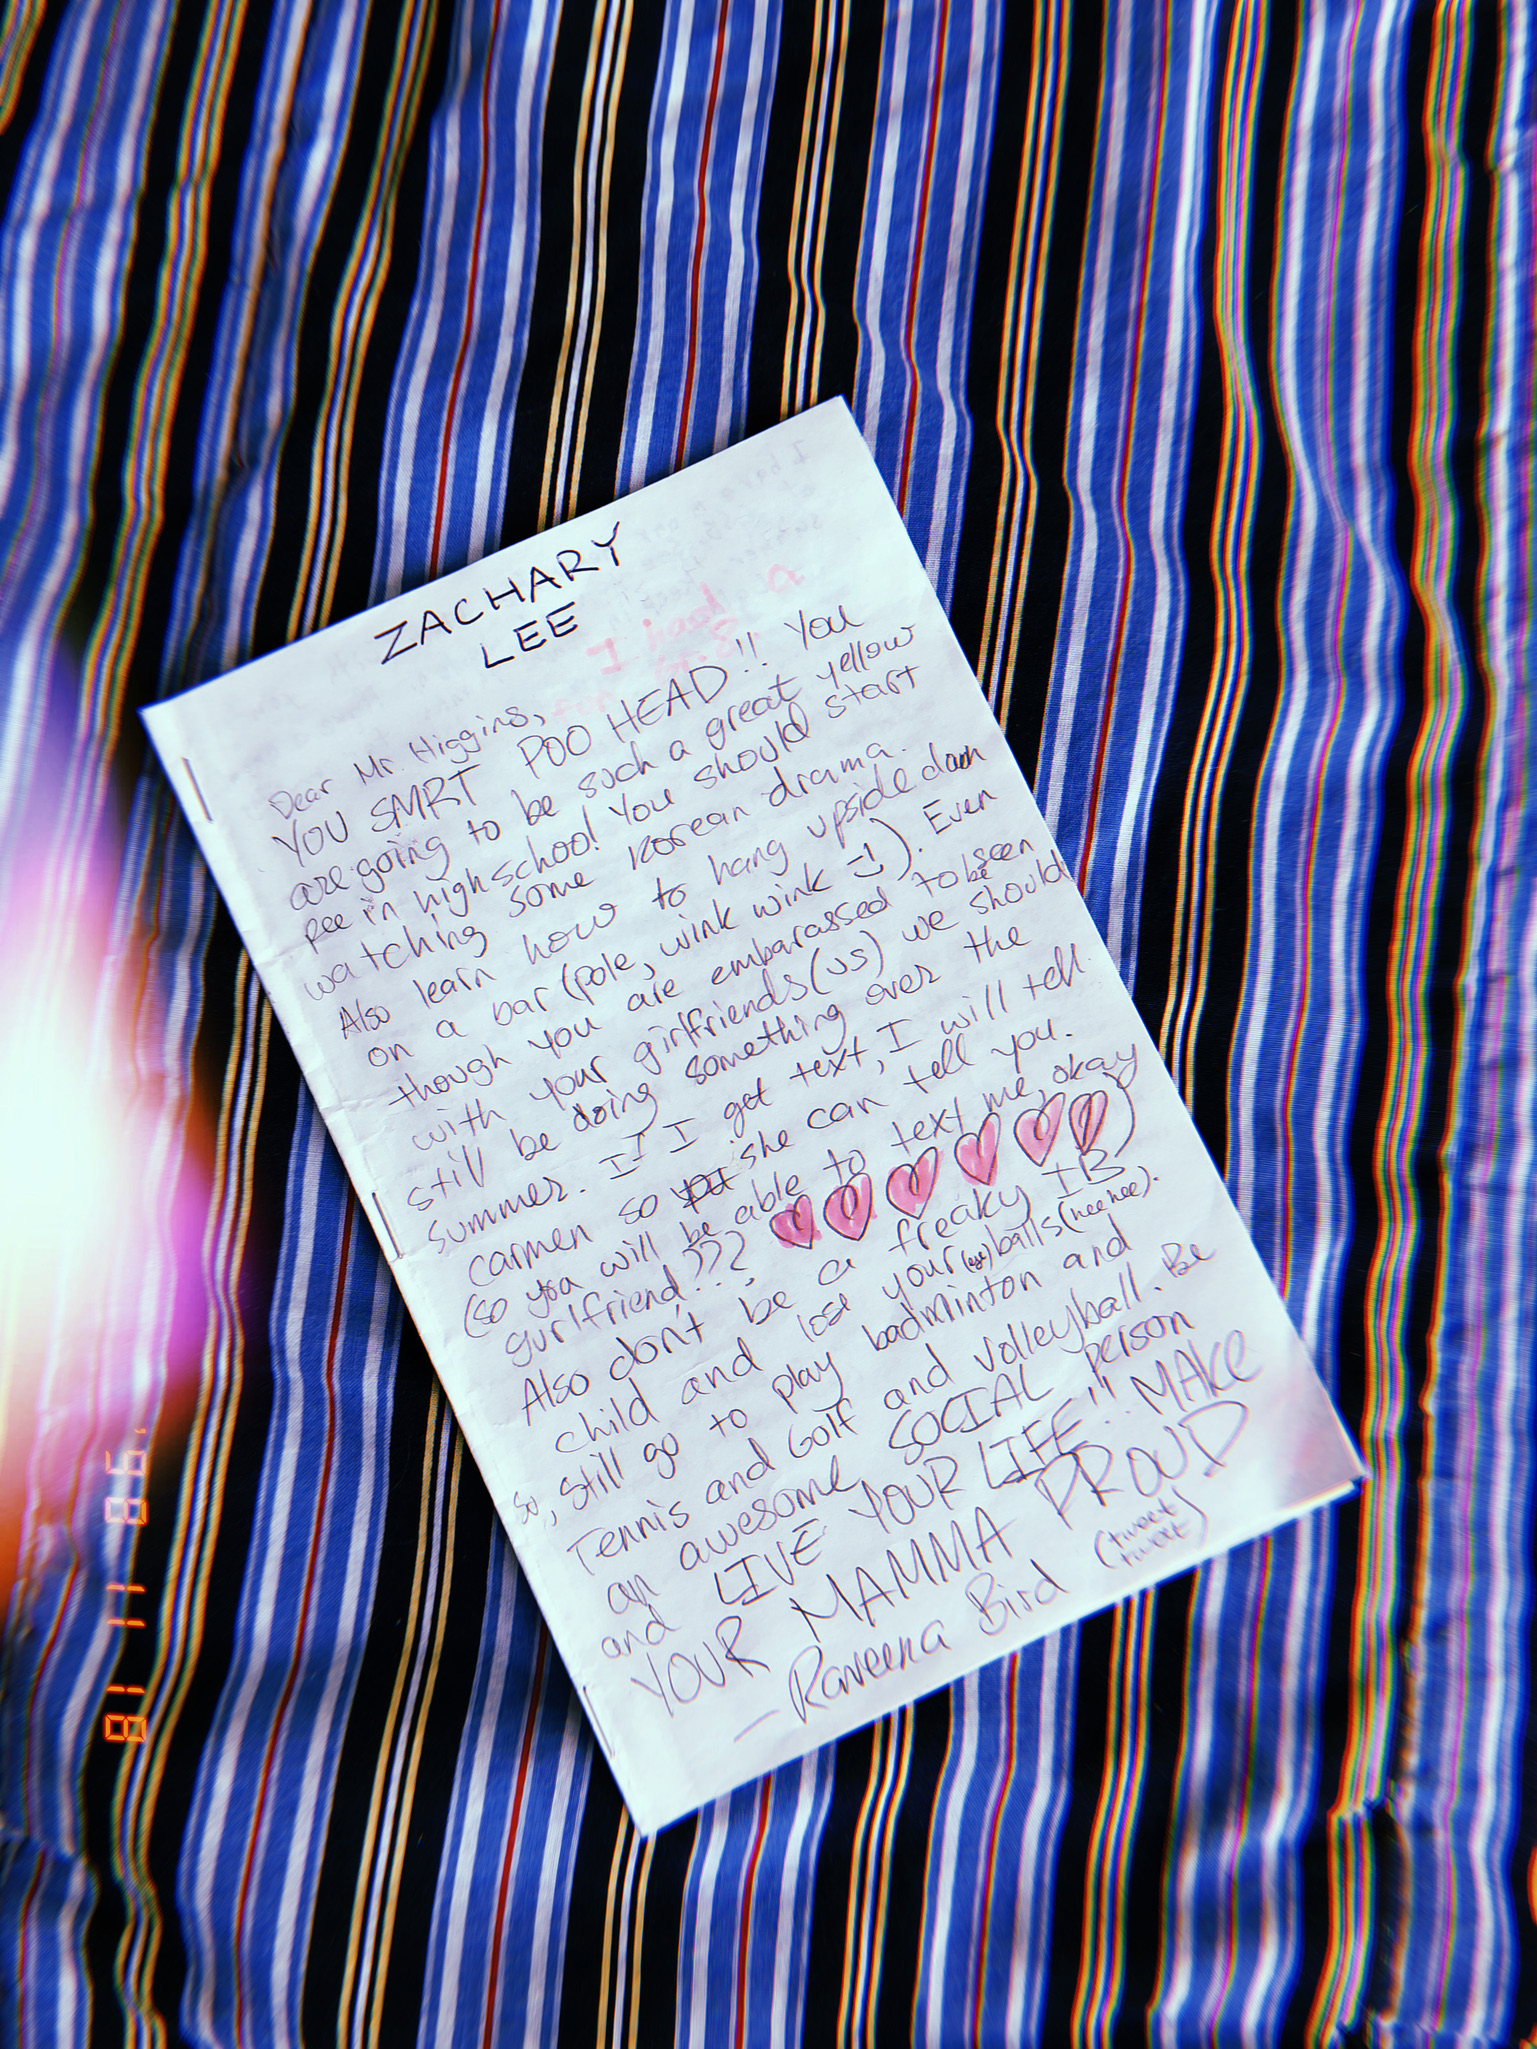 ZACHARY
LEE
Dear Mr. Higgins,
YOU SMRT POO HEAD!! You
are going to be such a great yellow
pee in highschool! You should start
watching some Korean drama.
Also learn how to hang upside down
on a bar (pole, wink wink =!). Even
though you are embarassed to be seen
with your girlfriends (us) we should
still be doing something over the
summer. If I get text, I will tell
carmen so she can tell you.
(so you will be able to text me, okay
gurlfriend??? ♥♥♥♥♥♥)
Also don't be a freaky IB
child and lose your balls (hee hee).
so, still go to play badminton and
Tennis and Golf and volleyball. Be
an awesome SOCIAL person
and LIVE YOUR LIFE!! MAKE
YOUR MAMMA PROUD
— Raveena Bird (tweet
tweet)
I had a
81 11 86.